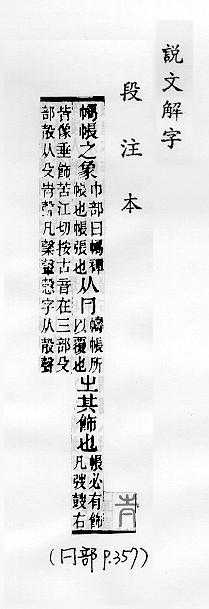 説文解字
段注本
幬帳之象
巾部曰幬禪
帳也帳張也
从冂
幬帳所
以覆也
㞢其飾也
帳必有飾
凡弢鼓右
皆像垂飾苦江切按古音在三部殳
部㱿从殳聲凡字从㱿聲
(冂部 P.357)